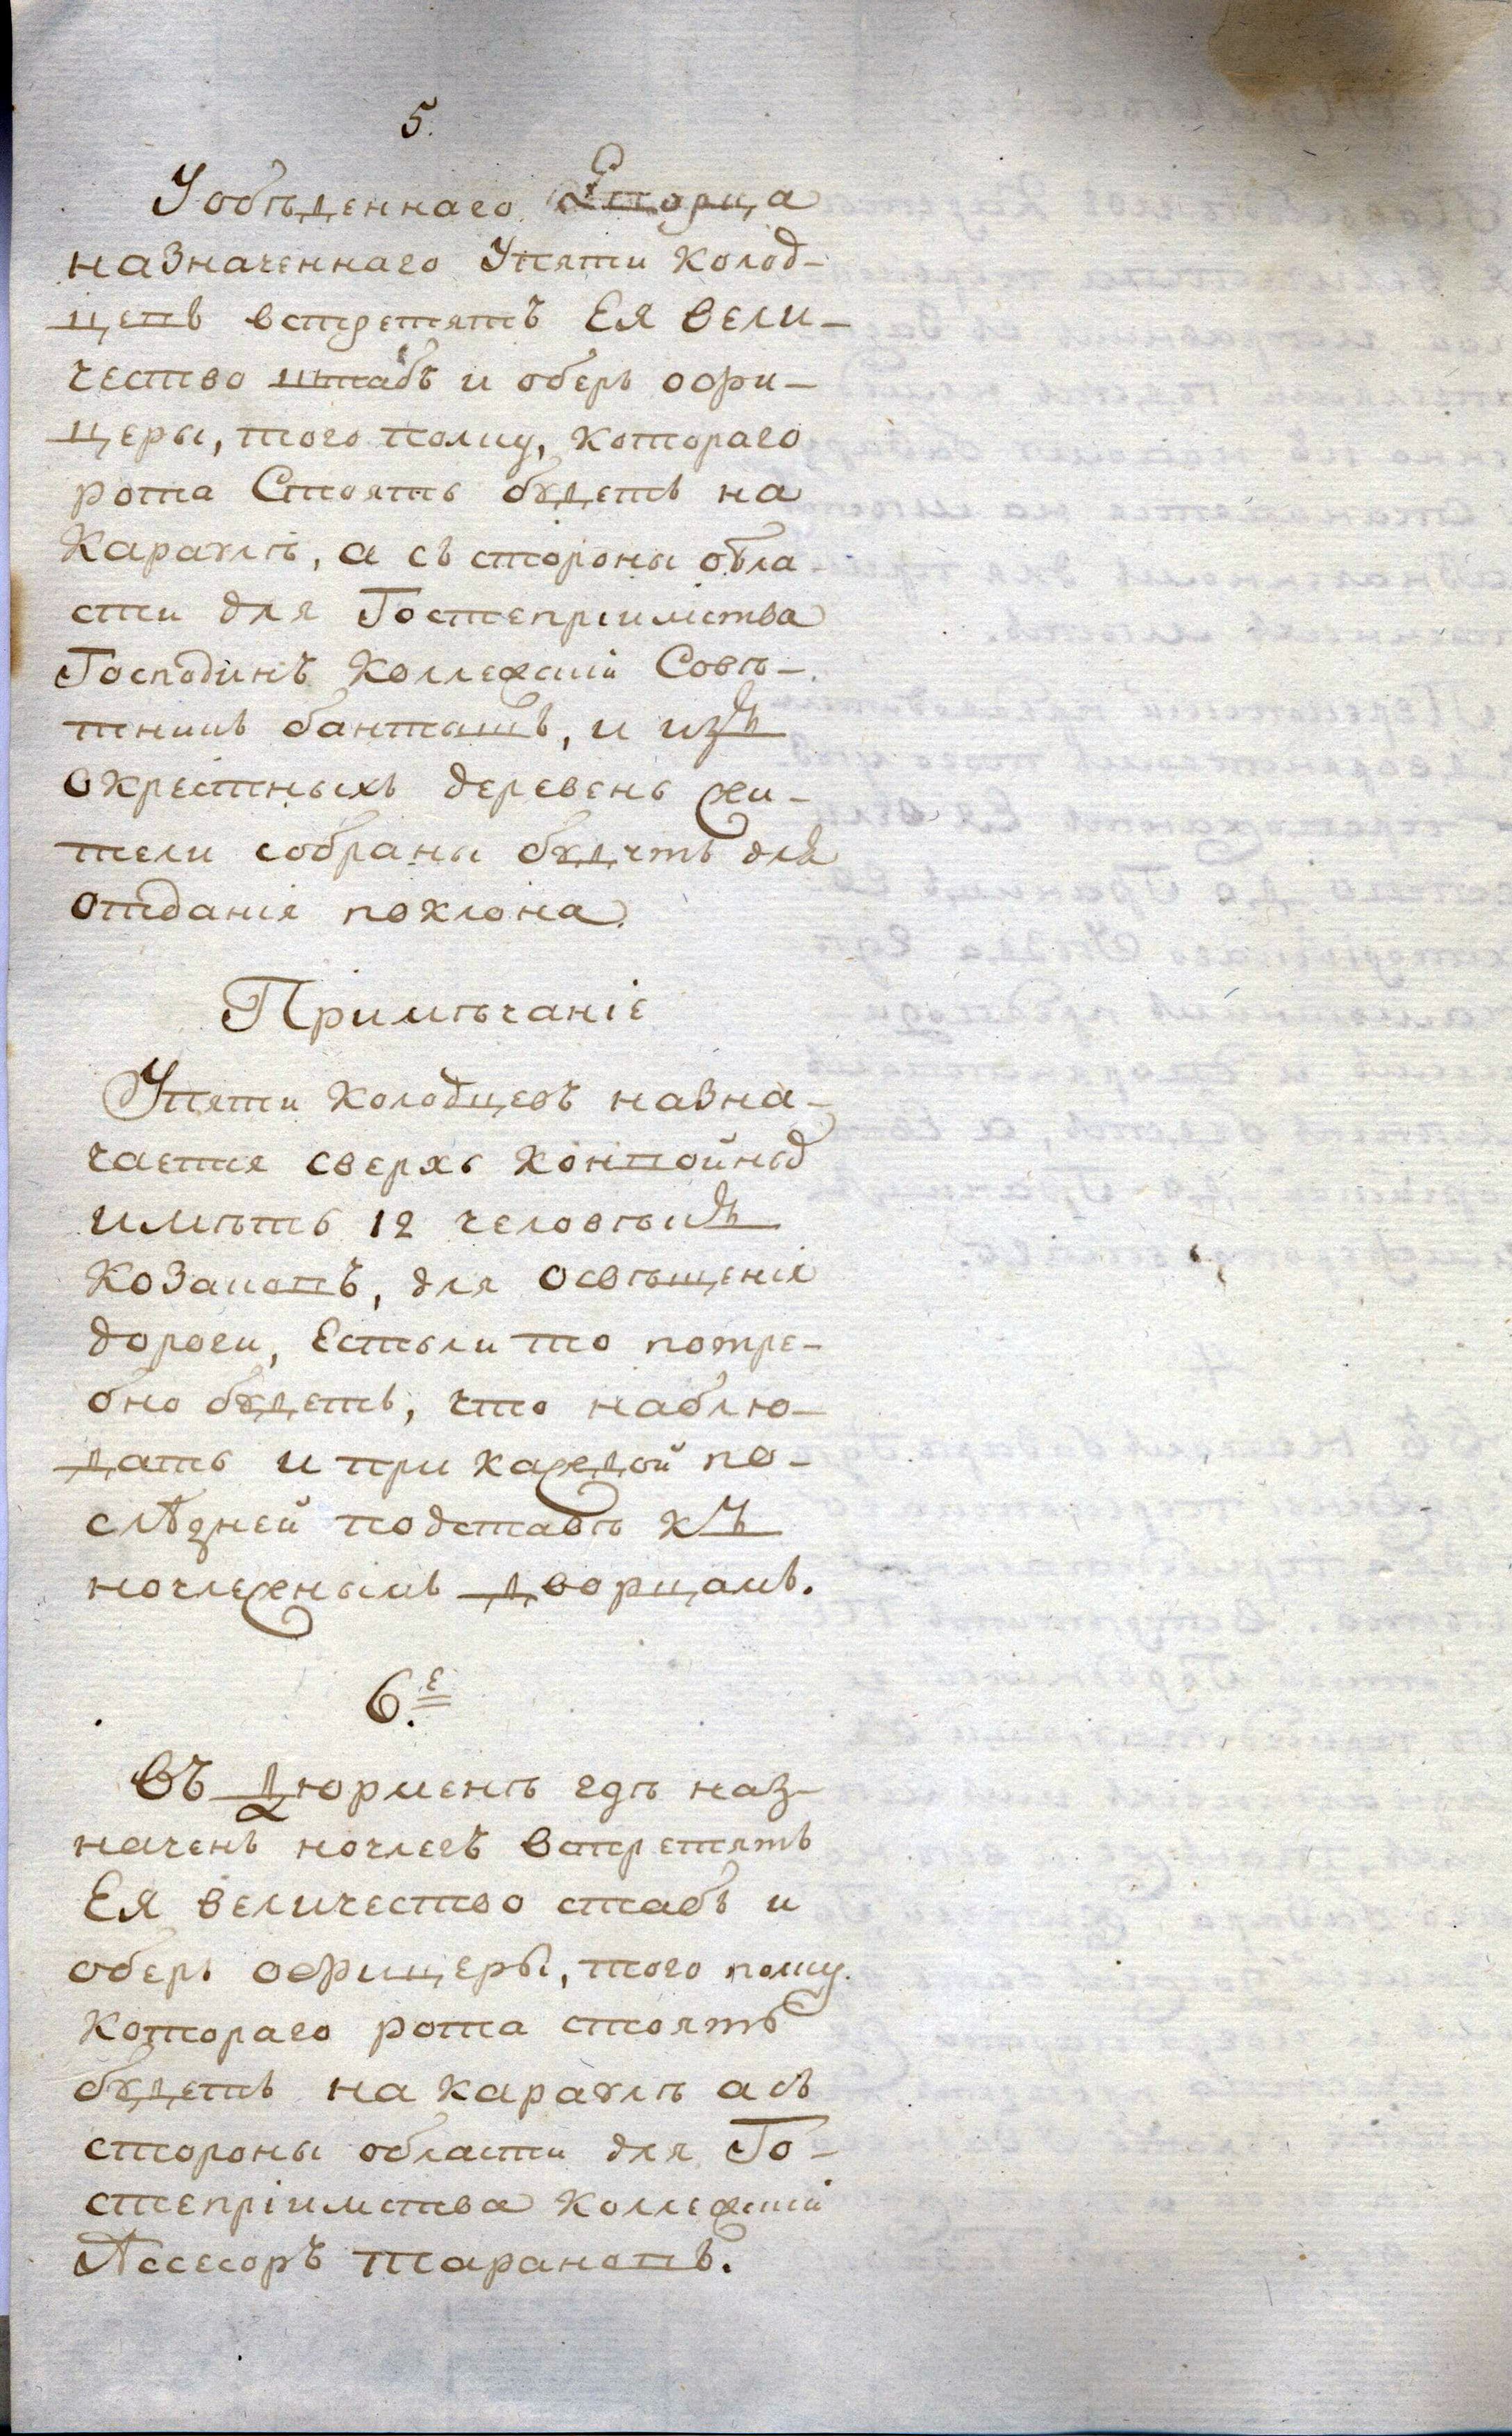 5.
У обѣденнаго Дворца
назначеннаго Упяти Колод-
цевъ встретятъ Ея Вели-
чество штабъ и оберъ офи-
церы, того полку, котораго
рота Стоять будетъ на
Караулѣ, а съ стороны обла
сти для Гостепріимства
Господинъ Коллежскій Совѣ-
тникъ бантышъ, и изъ
окрестныхъ деревень жи-
тели собраны будутъ для
отданія поклона.
Примѣчаніе
Упяти Колодцевъ назна-
чается сверхъ Конвойныхъ
имѣть 12 человѣкъ
Козаковъ, для освѣщенія
дороги, Естьли то потре-
бно будетъ, что наблю-
дать и при каждой по-
слѣдней подставѣ къ
ночлежнымъ дворцамъ.
6.е
Въ Дюрменѣ гдѣ наз-
наченъ ночлегъ встретятъ
Ея величество стабъ и
оберъ офицеры, того полку
котораго рота стоять
будетъ на караулѣ а съ
стороны области для Го-
степріимства Коллежскій
Ассесоръ тарановъ.